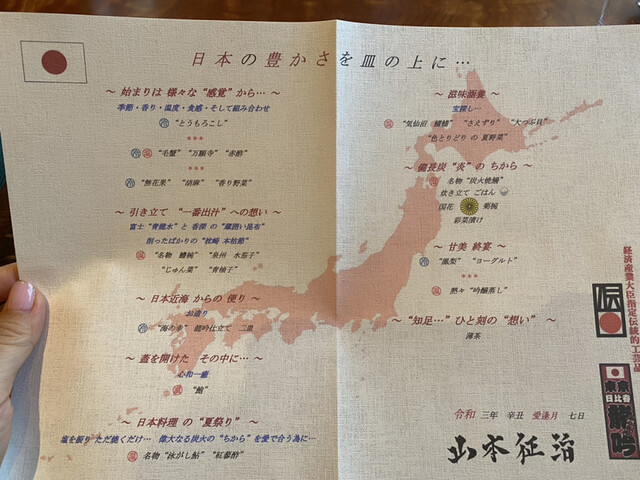 日本の豊かさを皿の上に…
～ 始まりは 様々な “感覚” から… ～
季節・香り・温度・食感・そして組み合わせ
冷 “とうもろこし”
***
冷 温 “毛蟹” “万願寺” “赤酢”
***
冷 “無花果” “胡麻” “香り野菜”
～ 引き立て “一番出汁” への想い ～
富士 “青龍水” と 香深の “蔵囲い昆布”
削ったばかりの “枕崎 本枯節”
温 “名物 鱧椀” “泉州 水茄子”
“じゅん菜” “青柚子”
～ 日本近海 からの 便り ～
お造り
冷 “海の幸” 龍吟仕立て 二皿
～ 蓋を開けた その中に… ～
心和一椀
温 “鮑”
～ 日本料理 の “夏祭り” ～
塩を振り ただ焼くだけ… 偉大なる炭火の “ちから” を愛で合う為に…
温 名物 “泳がし鮎” “紅蓼酢”
～ 滋味涵養 ～
宝探し…
温 “気仙沼 鱶鰭” “さえずり” “大つぶ貝”
“色とりどり の 夏野菜”
～ 備長炭 “炎” の ちから ～
温 名物 “炭火焼鰻”
炊き立て ごはん
国花 菊椀
彩菜漬け
～ 甘美 終宴 ～
冷 “鳳梨” “ヨーグルト”
***
温 熱々 “吟醸蒸し”
～ “知足…” ひと刻の “想い” ～
薄茶
令和 三年 辛丑 愛逢月 七日
山本征治
経済産業大臣指定伝統的工芸品
伝
東京
日比谷
龍吟